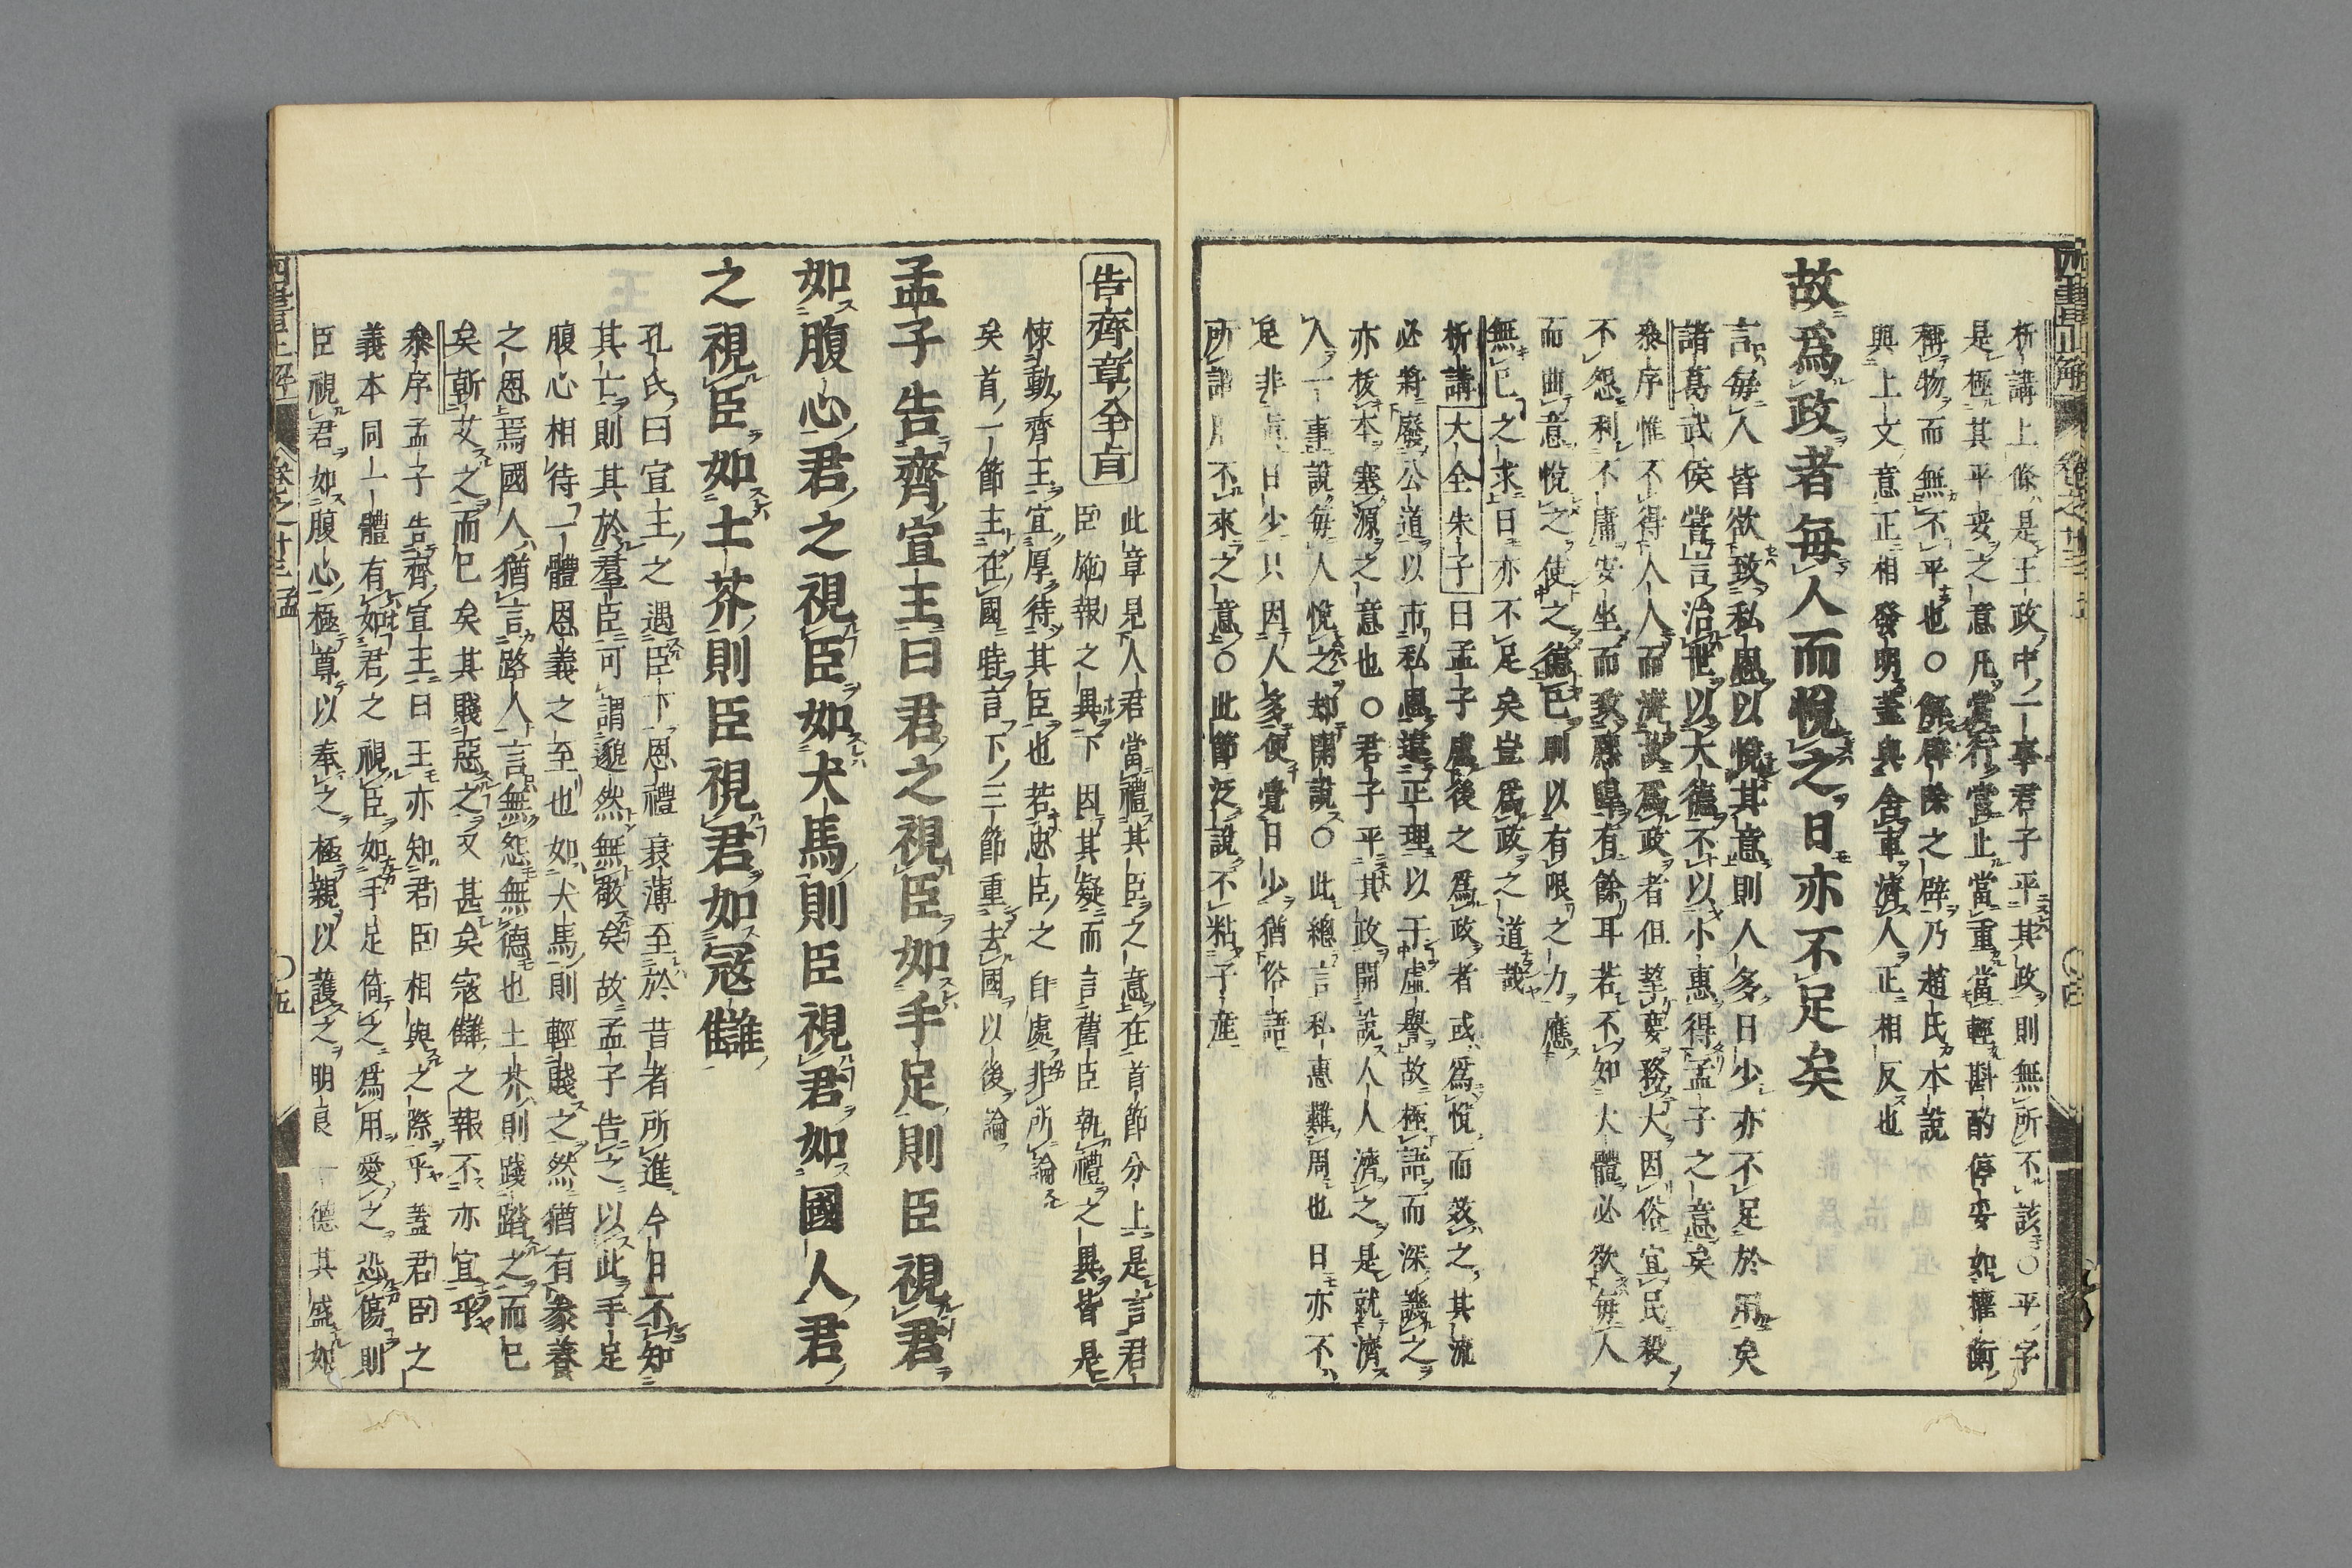 析講上條是王政中一事君子平其政則無所不該〇平字
是極其平妥之意凡當行當止當重當輕斟酌停妥如權衡
稱物而無不平也〇觧辟除之辟乃趙氏本說
與上文意正相發明蓋與舍車濟人正相反也
故爲政者每人而悅之日亦不足矣
言每人皆欲致私恩以悅其意則人多日少亦不足於用矣
諸葛武侯嘗言治世以大德不以小惠得孟子之意矣
叅序惟不得人人而濟故爲政者但挈要務大因俗宜民殺
不怨利不庸安坐而致驩皥有餘耳若不知大體必欲每人
而曲意悅之使之德已則以有限之力應
無已之求日亦不足矣豈爲政之道哉
析講大全朱子曰孟子慮後之爲政者或爲悅而效之其流
必將廢公道以市私恩違正理以干虛譽故極語而深譏之
亦核本塞源之意也〇君子平其政開說人人濟之是就濟
人一事說每人悅之却開說〇此總言私惠難周也日亦不
足非眞日少只因人多便覺日少猶俗語
所謂不來之意〇此節泛說不粘子產
告齊章全旨
此章見人君當禮其臣之意在首節分上是言君
臣施報之異下因其疑而言舊臣執禮之異皆是
悚動齊王宜厚待其臣也若忠臣之自處非所論
矣首一節主在國時言下三節重去國以後論
孟子告齊宣王曰君之視臣如手足則臣視君
如腹心君之視臣如犬馬則臣視君如國人君
之視臣如土芥則臣視君如寇讎
孔氏曰宣王之遇臣下恩禮衰薄至於昔者所進今日不知
其亡則其於羣臣可謂邈然無敬矣故孟子告之以此手足
腹心相待一體恩義之至也如犬馬則輕賤之然猶有豢養
之恩焉國人猶言路人言無怨無德也土芥則踐踏之而已
矣斬艾之而已矣其賤惡之又甚矣寇讎之報不亦宜乎
叅序孟子告齊宣王曰王亦知君臣相與之際乎蓋君臣之
義本同一體有如君之視臣如手足倚之爲用愛之恐傷則
臣視君如腹心極尊以奉之極親以護之明良一德其盛如